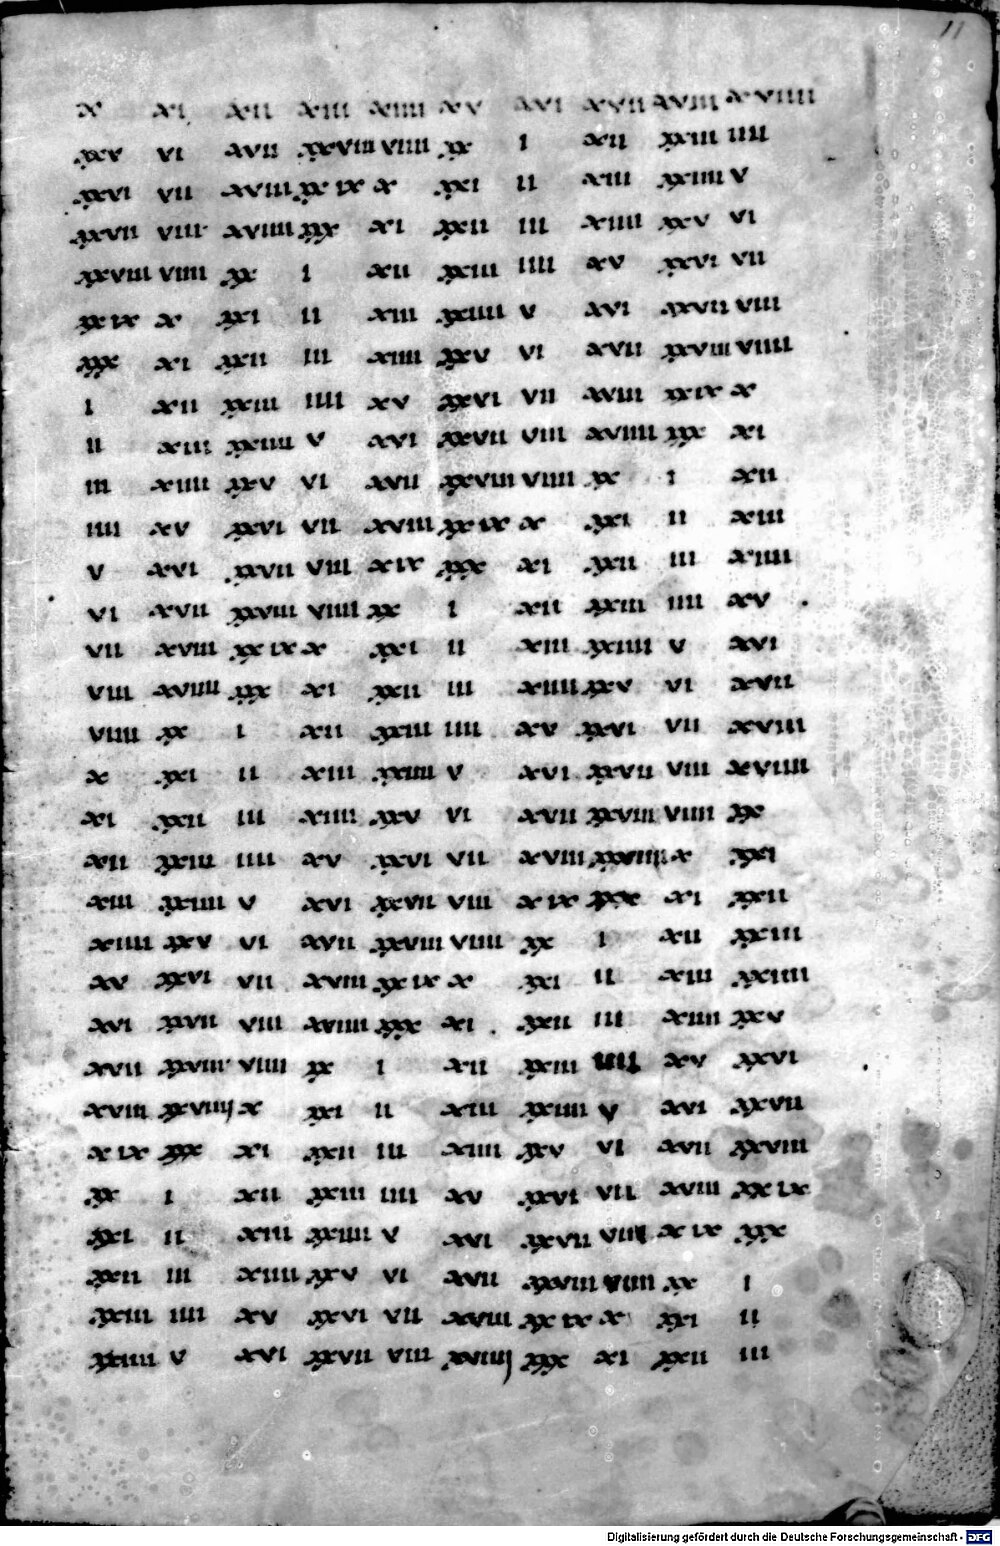 11
x xi xii xiii xiiii xv xvi xvii xviii xviiii
xxv vi xvii xxviii viiii xx i xii xxiii iiii
xxvi vii xviii xxix x xxi ii xiii xxiiii v
xxvii viii xviiii xxx xi xxii iii xiiii xxv vi
xxviii viiii xx i xii xxiii iiii xv xxvi vii
xxix x xxi ii xiii xxiiii v xvi xxvii viii
xxx xi xxii iii xiiii xxv vi xvii xxviii viiii
i xii xxiii iiii xv xxvi vii xviii xxix x
ii xiii xxiiii v xvi xxvii viii xviiii xxx xi
iii xiiii xxv vi xvii xxviii viiii xx i xii
iiii xv xxvi vii xviii xxix x xxi ii xiii
v xvi xxvii viii xix xxx xi xxii iii xiiii
vi xvii xxviii viiii xx i xii xxiii iiii xv
vii xviii xxix x xxi ii xiii xxiiii v xvi
viii xviiii xxx xi xxii iii xiiii xxv vi xvii
viiii xx i xii xxiii iiii xv xxvi vii xviii
x xxi ii xiii xxiiii v xvi xxvii viii xviiii
xi xxii iii xiiii xxv vi xvii xxviii viiii xx
xii xxiii iiii xv xxvi vii xviii xxviiii x xxi
xiii xxiiii v xvi xxvii viii xix xxx xi xxii
xiiii xxv vi xvii xxviii viiii xx i xii xxiii
xv xxvi vii xviii xxix x xxi ii xiii xxiiii
xvi xxvii viii xviiii xxx xi xxii iii xiiii xxv
xvii xxviii viiii xx i xii xxiii iiii xv xxvi
xviii xxviiij x xxi ii xiii xxiiii v xvi xxvii
xix xxx xi xxii iii xiiii xxv vi xvii xxviii
xx i xii xxiii iiii xv xxvi vii xviii xxix
xxi ii xiii xxiiii v xvi xxvii viii xix xxx
xxii iii xiiii xxv vi xvii xxviii viiii xx i
xxiii iiii xv xxvi vii xviii xxix x xxi ii
xxiiii v xvi xxvii viii xviiij xxx xi xxii iii
Digitalisierung gefördert durch die Deutsche Forschungsgemeinschaft - DFG